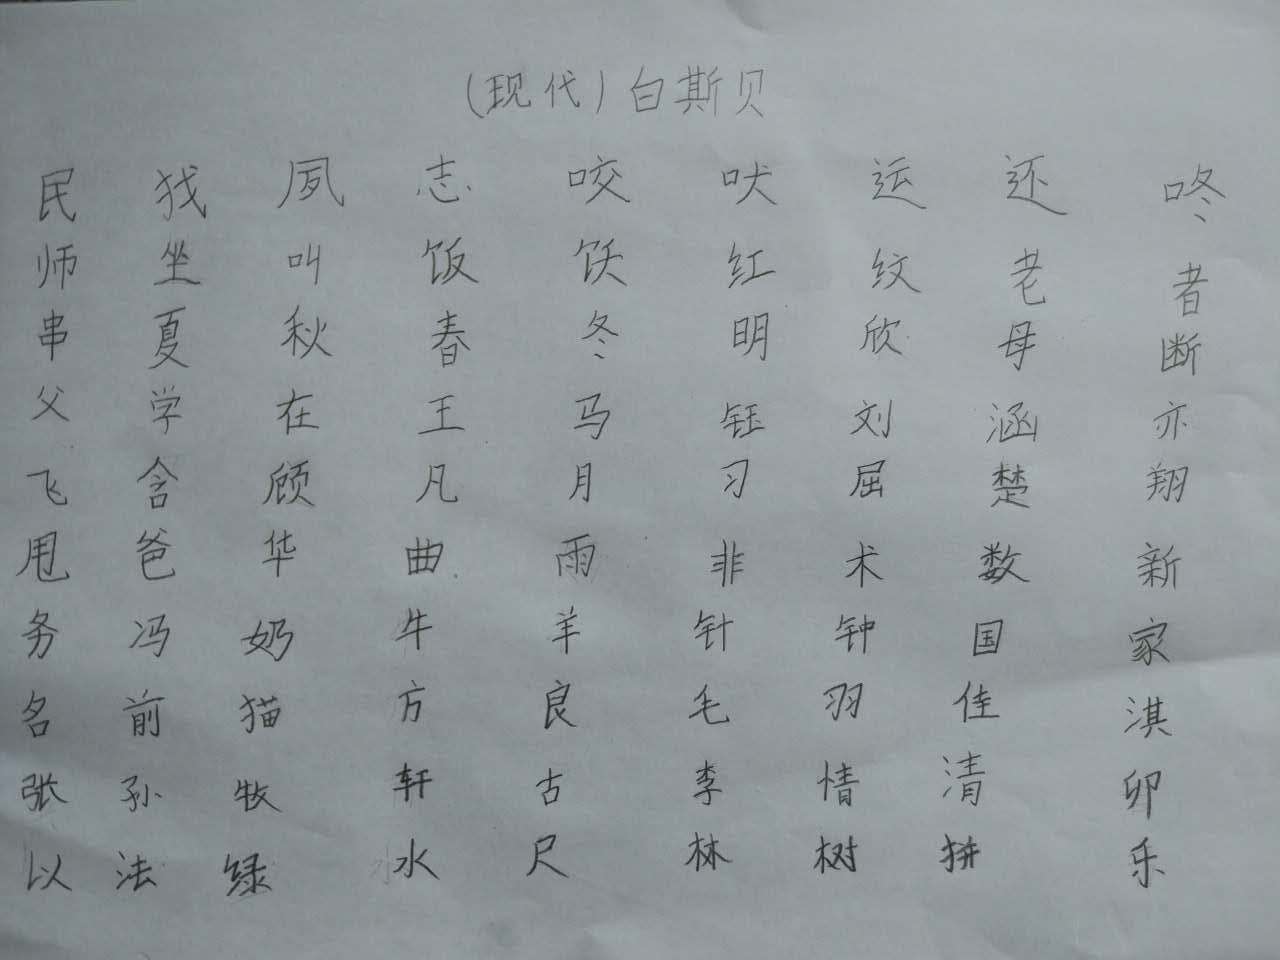 (现代)白斯贝
民 找 夙 志 咬 吠 运 还 咚
师 坐 叫 饭 饫 红 纹 老 者
串 夏 秋 春 冬 明 欣 母 断
父 学 在 王 马 钰 刘 涵 亦
飞 含 顾 凡 月 习 屈 楚 翔
甩 爸 华 曲 雨 非 术 数 新
务 冯 奶 牛 羊 针 钟 国 家
名 前 猫 方 良 毛 羽 佳 淇
张 孙 牧 轩 古 李 情 清 卯
以 法 绿 水 尺 林 树 拼 乐